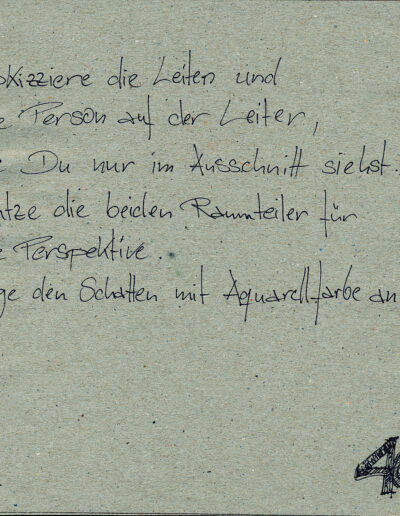 skizziere die Leiter und
e Person auf der Leiter,
e Du nur im Ausschnitt siehst.
utze die beiden Raumteiler für
e Perspektive.
ge den Schatten mit Aquarellfarbe an